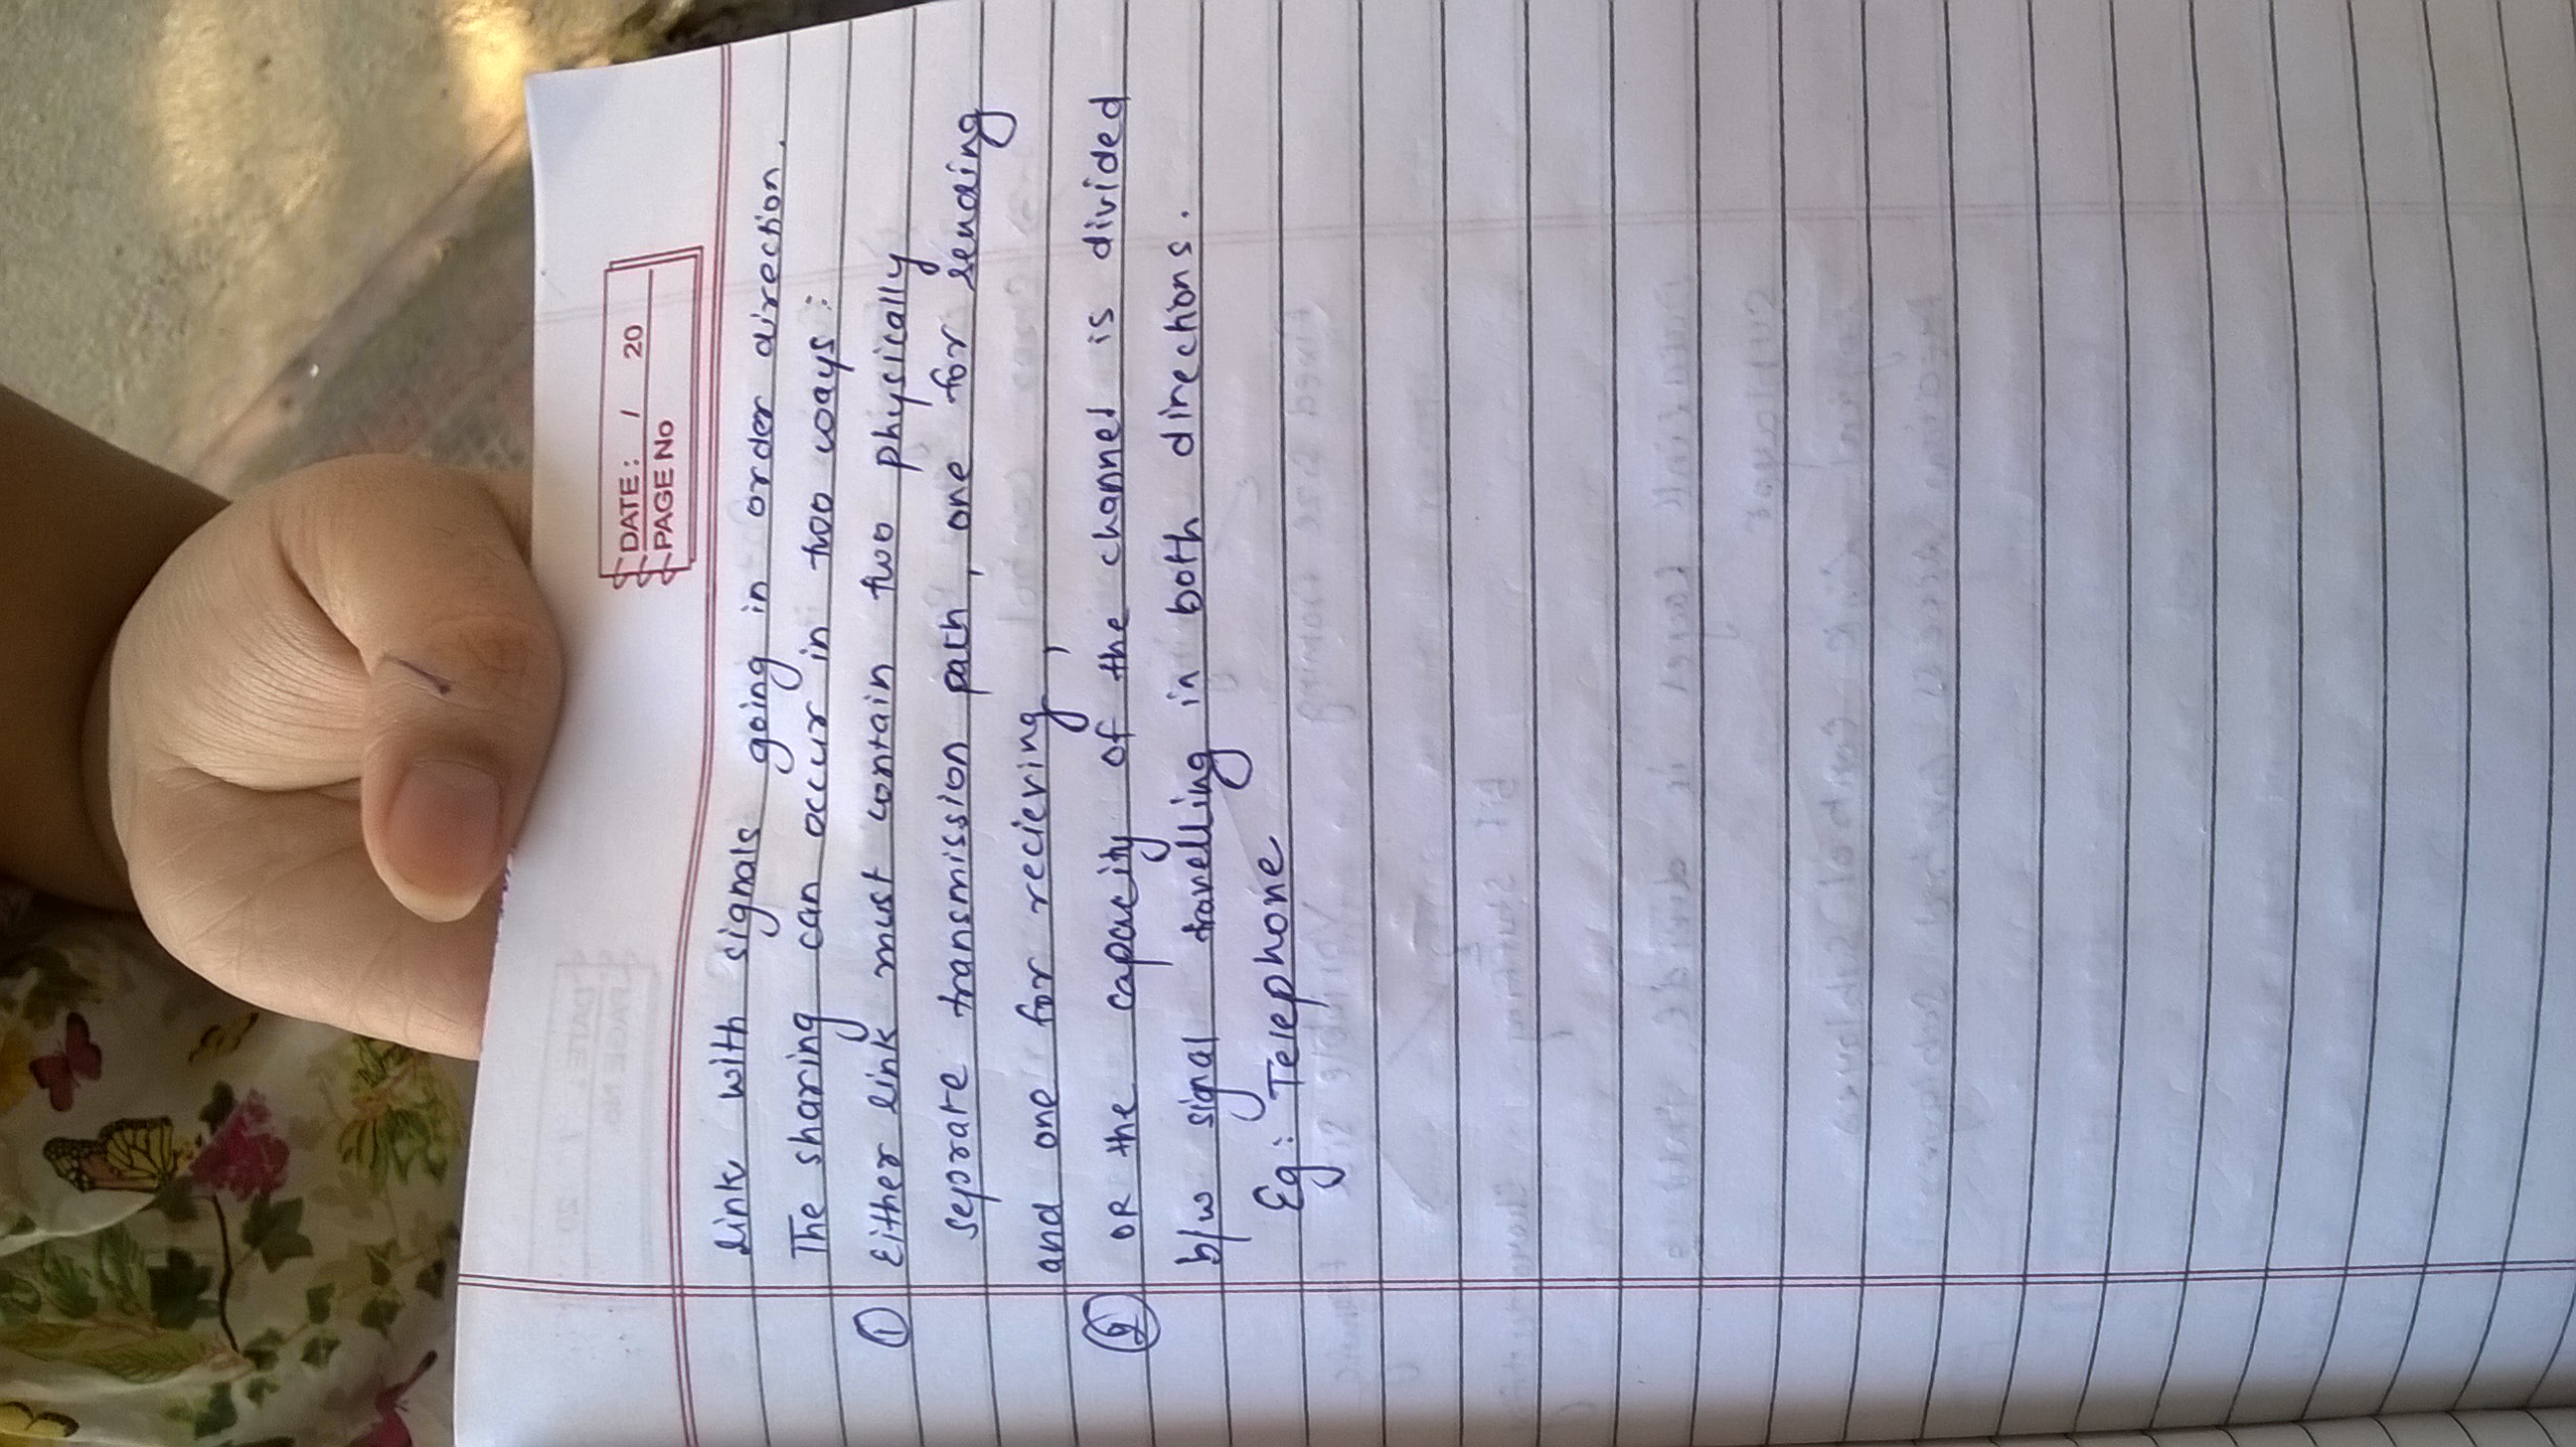 DATE: / 20
PAGE No
link with signals going in order direction.
The sharing can occur in two ways:
① Either link must contain two physically
seprate transmission path, one for sending
and one for recieving,
② OR the capacity of the channel is divided
b/w signal travelling in both directions.
Eg: Telephone